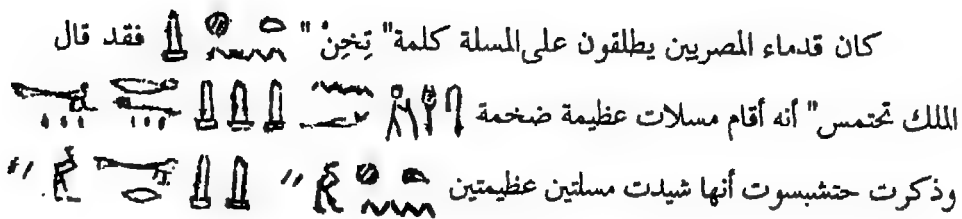 كان قدماء المصريين يطلقون على المسلة كلمة" تِخِنْ " فقد قال
الملك تحتمس" أنه أقام مسلات عظيمة ضخمة
وذكرت حتشبسوت أنها شيدت مسلتين عظيمتين